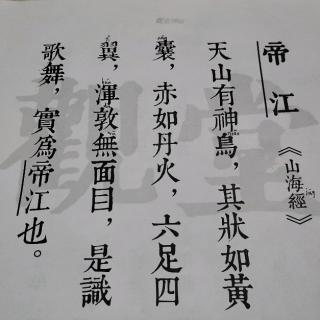 帝江
《山海經》
天山有神鳥，其狀如黃
囊，赤如丹火，六足四
翼，渾敦無面目，是識
歌舞，實為帝江也。
觀堂